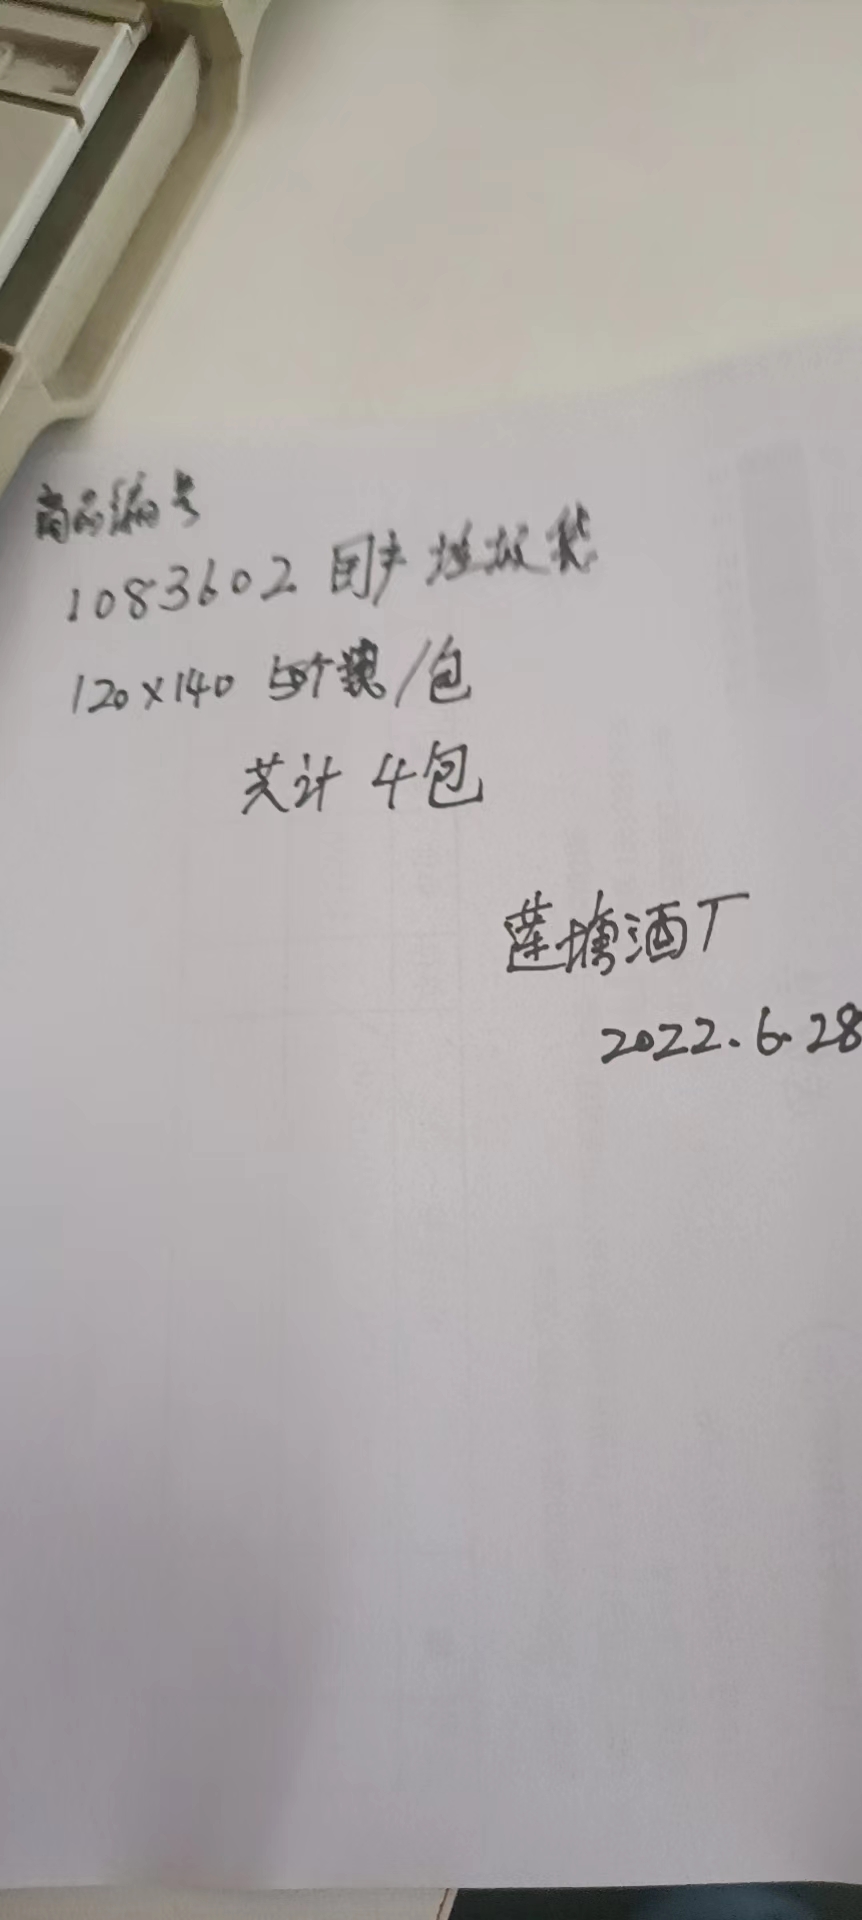 商品编号
1083602 国产垃圾袋
120×140 50个装/包
共计 4包
莲塘酒厂
2022.6.28